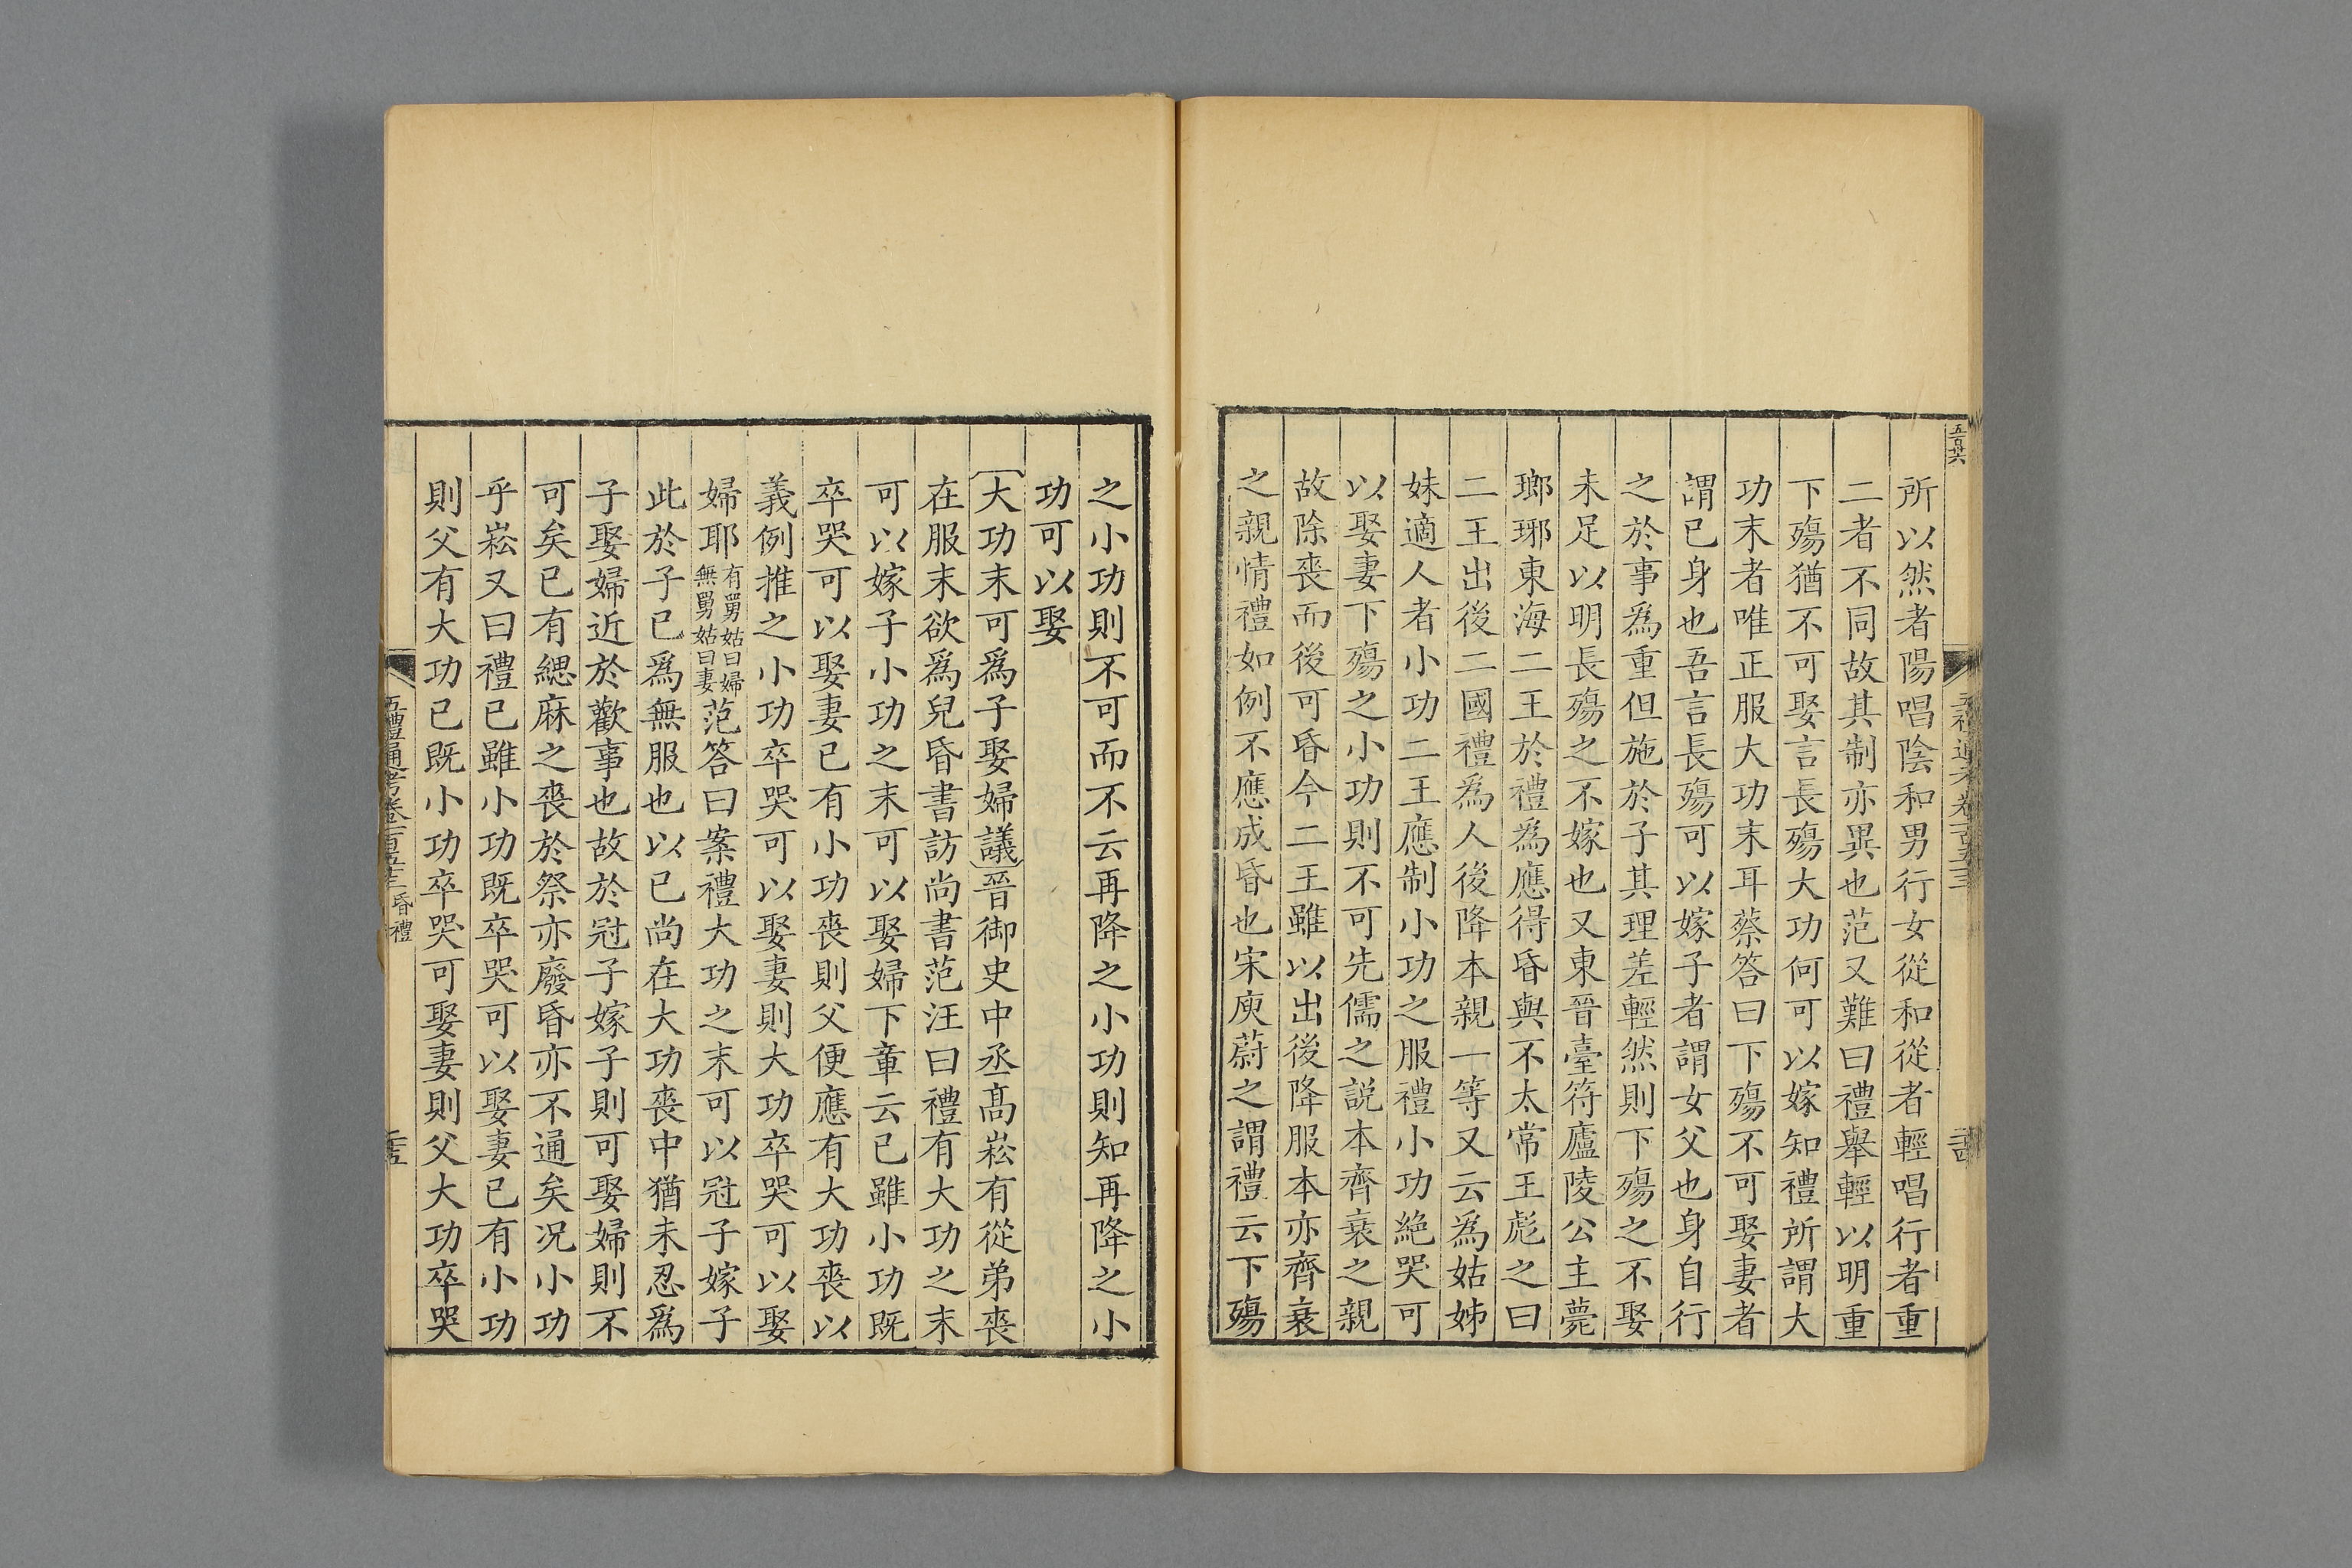 五百六
所以然者陽唱陰和男行女從和從者輕唱行者重
二者不同故其制亦異也范又難曰禮舉輕以明重
下殤猶不可娶言長殤大功何可以嫁知禮所謂大
功末者唯正服大功末耳蔡答曰下殤不可娶妻者
謂已身也吾言長殤可以嫁子者謂女父也身自行
之於事爲重但施於子其理差輕然則下殤之不娶
未足以明長殤之不嫁也又東晉臺符廬陵公主薨
瑯琊東海二王於禮爲應得昏與不太常王彪之曰
二王出後二國禮爲人後降本親一等又云爲姑姊
妹適人者小功二王應制小功之服禮小功絕哭可
以娶妻下殤之小功則不可先儒之説本齊衰之親
故除喪而後可昏今二王雖以出後降服本亦齊衰
之親情禮如例不應成昏也宋庾蔚之謂禮云下殤
之小功則不可而不云再降之小功則知再降之小
功可以娶
大功末可爲子娶婦議晉御史中丞高崧有從弟喪
在服末欲爲兒昏書訪尚書范汪曰禮有大功之末
可以嫁子小功之末可以娶婦下章云已雖小功既
卒哭可以娶妻已有小功喪則父便應有大功喪以
義例推之小功卒哭可以娶妻則大功卒哭可以娶
婦耶有舅姑曰婦無舅姑曰妻范答曰案禮大功之末可以冠子嫁子
此於子已爲無服也以已尚在大功喪中猶未忍爲
子娶婦近於歡事也故於冠子嫁子則可娶婦則不
可矣已有緦麻之喪於祭亦廢昏亦不通矣况小功
乎崧又曰禮已雖小功既卒哭可以娶妻已有小功
則父有大功已既小功卒哭可娶妻則父大功卒哭
五禮通考卷一百五十三 昏禮